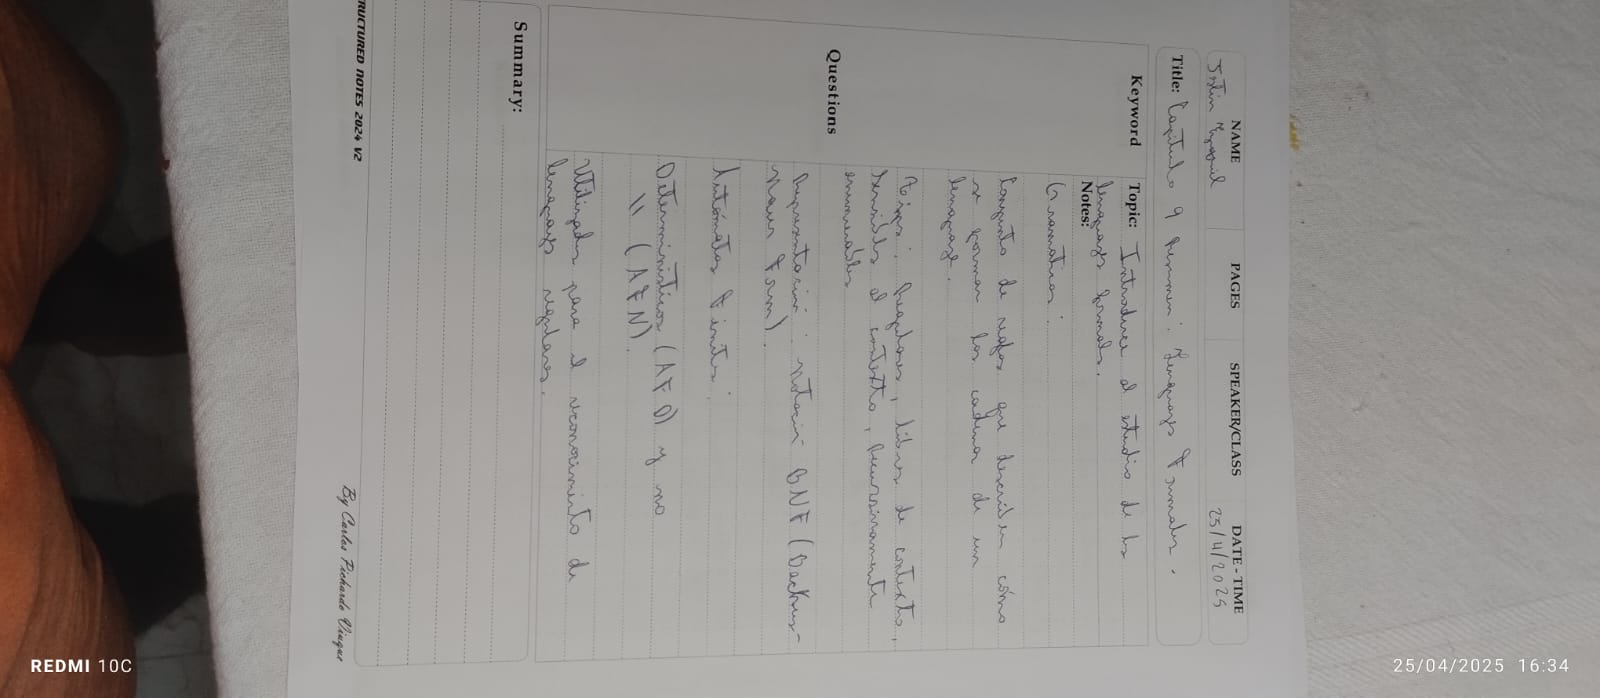 NAME PAGES SPEAKER/CLASS DATE - TIME
25/4/2025
Title: Capitulo 9 Resumen: Lenguajes Formales.
Keyword
Topic: Introduce al estudio de los
lenguajes formales.
Notes:
Gramaticas:
Conjunto de reglas que describen cómo
se forman las cadenas de un
lenguaje.
Tipos: Regulares, libres de contexto,
sensibles al contexto, Recursivamente
enumerables
Questions
Representación: notación BNF (Backus-
Naur Form).
Autómatas Finitos:
Deterministicos (AFD) y no
11 (AFN).
Utilizados para el reconocimiento de
lenguajes regulares.
Summary:
RUCTURED NOTES 2024 V2
By Carlos Pichardo Viuque
REDMI 10C
25/04/2025 16:34